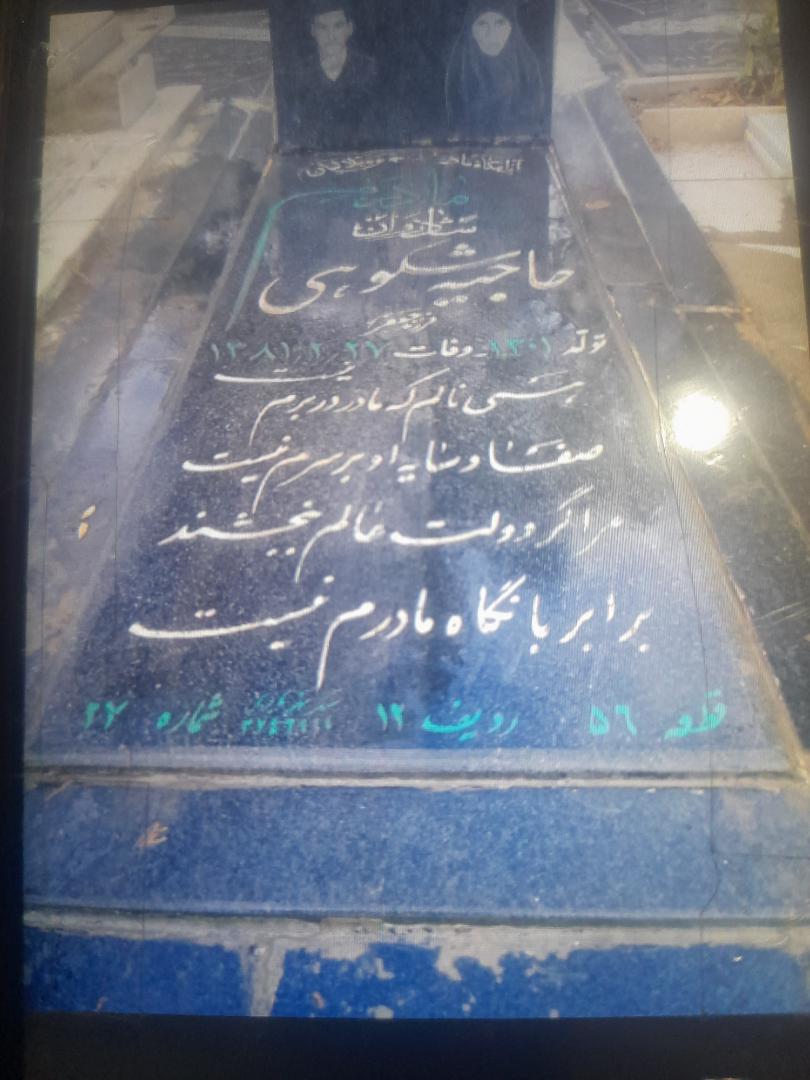 مادر
شادروان
حاجیه شکوهی
فرزند
تولد ۱۳۰۱ - وفات ۲۷ / ۲ / ۱۳۸۱
همی نالم که مادر در برم نیست
صفا و سایه او بر سرم نیست
مرا گر دولت عالم ببخشند
برابر با نگاه مادرم نیست
قطعه ۵۶ ردیف ۱۲ شماره ۲۷